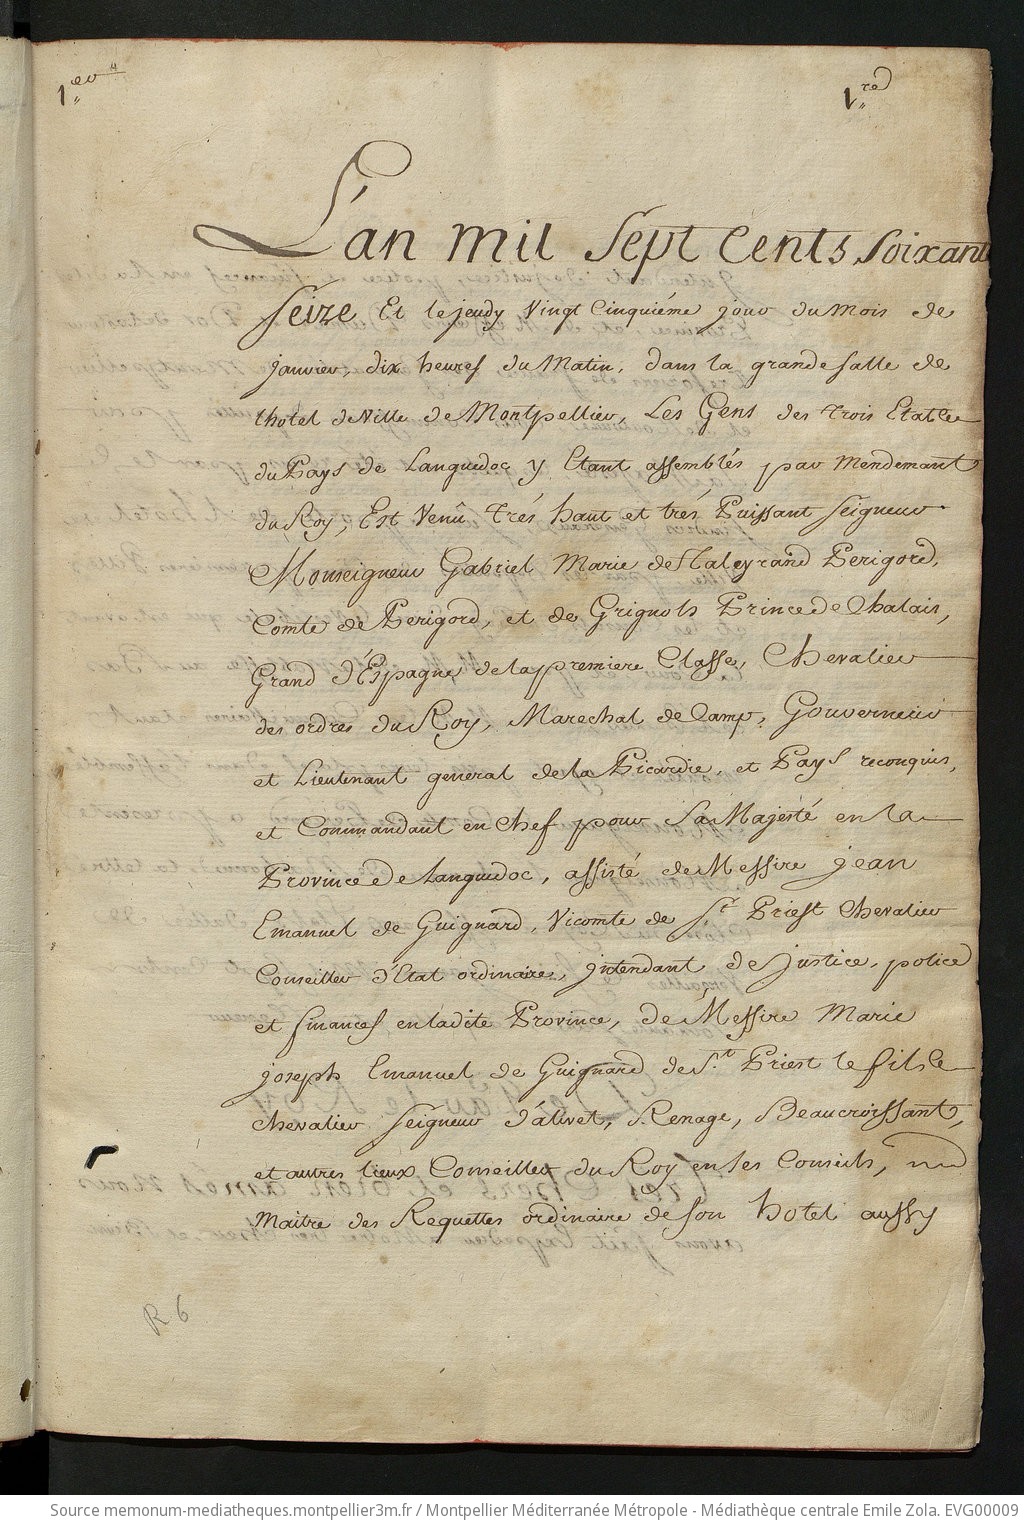 1er
1re
L'an mil Sept Cents Soixante
Seize Et le jeudy Vingt Cinquiéme jour du Mois de
janvier, dix heures du Matin, dans la grande Salle de
lhotel de Ville de Montpellier, Les Gens des trois Etats
du Pays de Languedoc y Etant assemblés par Mendemant
du Roy, Est Venû Trés haut et trés Puissant Seigneur
Monseigneur Gabriel Marie de Taleyrand Perigord,
Comte de Perigord, et de Grignols Prince de Chalais,
Grand d'Espagne de la premiere Classe, Chevalier
des ordres du Roy, Marechal de Camp, Gouverneur
et Lieutenant general de la Picardie, et Pays reconquis,
et Commandant en Chef pour Sa Majesté en la
Province de Languedoc, assisté de Messire jean
Emanuel de Guignard, Vicomte de St Priest Chevalier
Conseiller d'Etat ordinaire, jntendant de justice, police
et finances en ladite Province, de Messire Marie
joseph Emanuel de Guignard de St Priest le fils
Chevalier Seigneur d'alivet, Renage, Beaucroissant,
et autres lieux Conseiller du Roy en ses Conseils,
Maitre des Requettes ordinaire de son hotel aussy
R 6
Source memonum-mediatheques.montpellier3m.fr / Montpellier Méditerranée Métropole - Médiathèque centrale Emile Zola. EVG00009